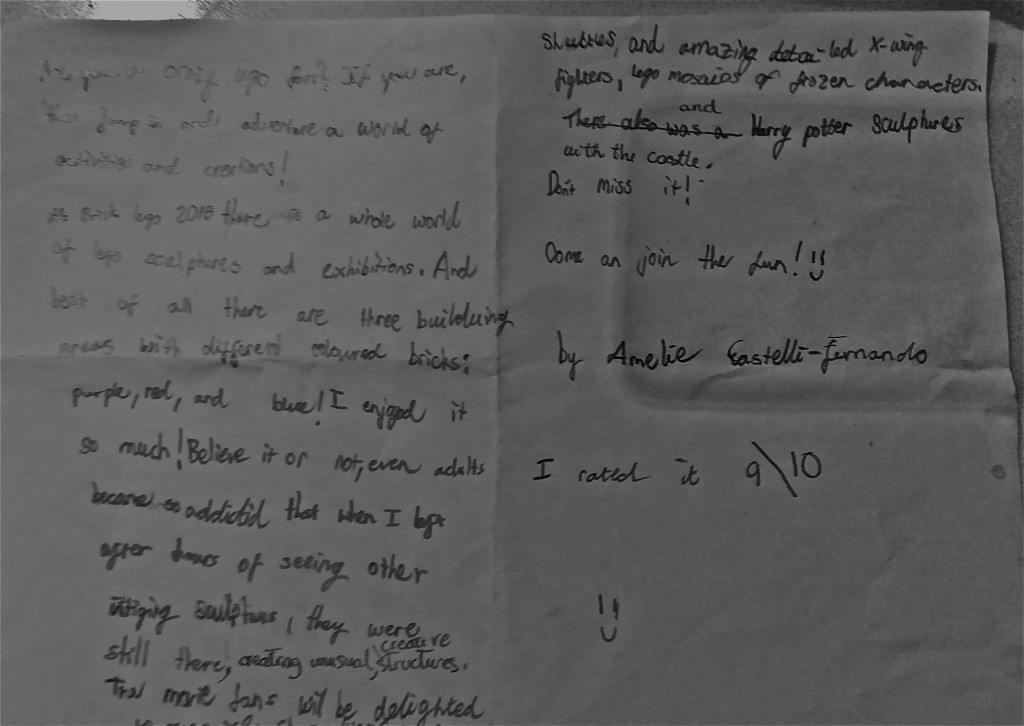 Are you a crazy lego fan? If you are,
then jump in and adventure a world of
activities and creations!
At Brick lego 2015 there is a whole world
of lego scelptures and exhibitions. And
best of all there are three builduing
areas with different coloured bricks:
purple, red, and blue! I enjoyed it
so much! Believe it or not, even adults
became so addictid that when I left
after hours of seeing other
sculptures, they were
still there, creating unusual, creative structures.
movie fans will be delighted
shuttles, and amazing detai-led X-wing
fighters, lego mosaics of frozen characters.
There also was a and Harry potter sculptures
with the castle.
Don't miss it!
Come an join the fun!
by Amelie Castelli-Fernando
I rated it 9\10